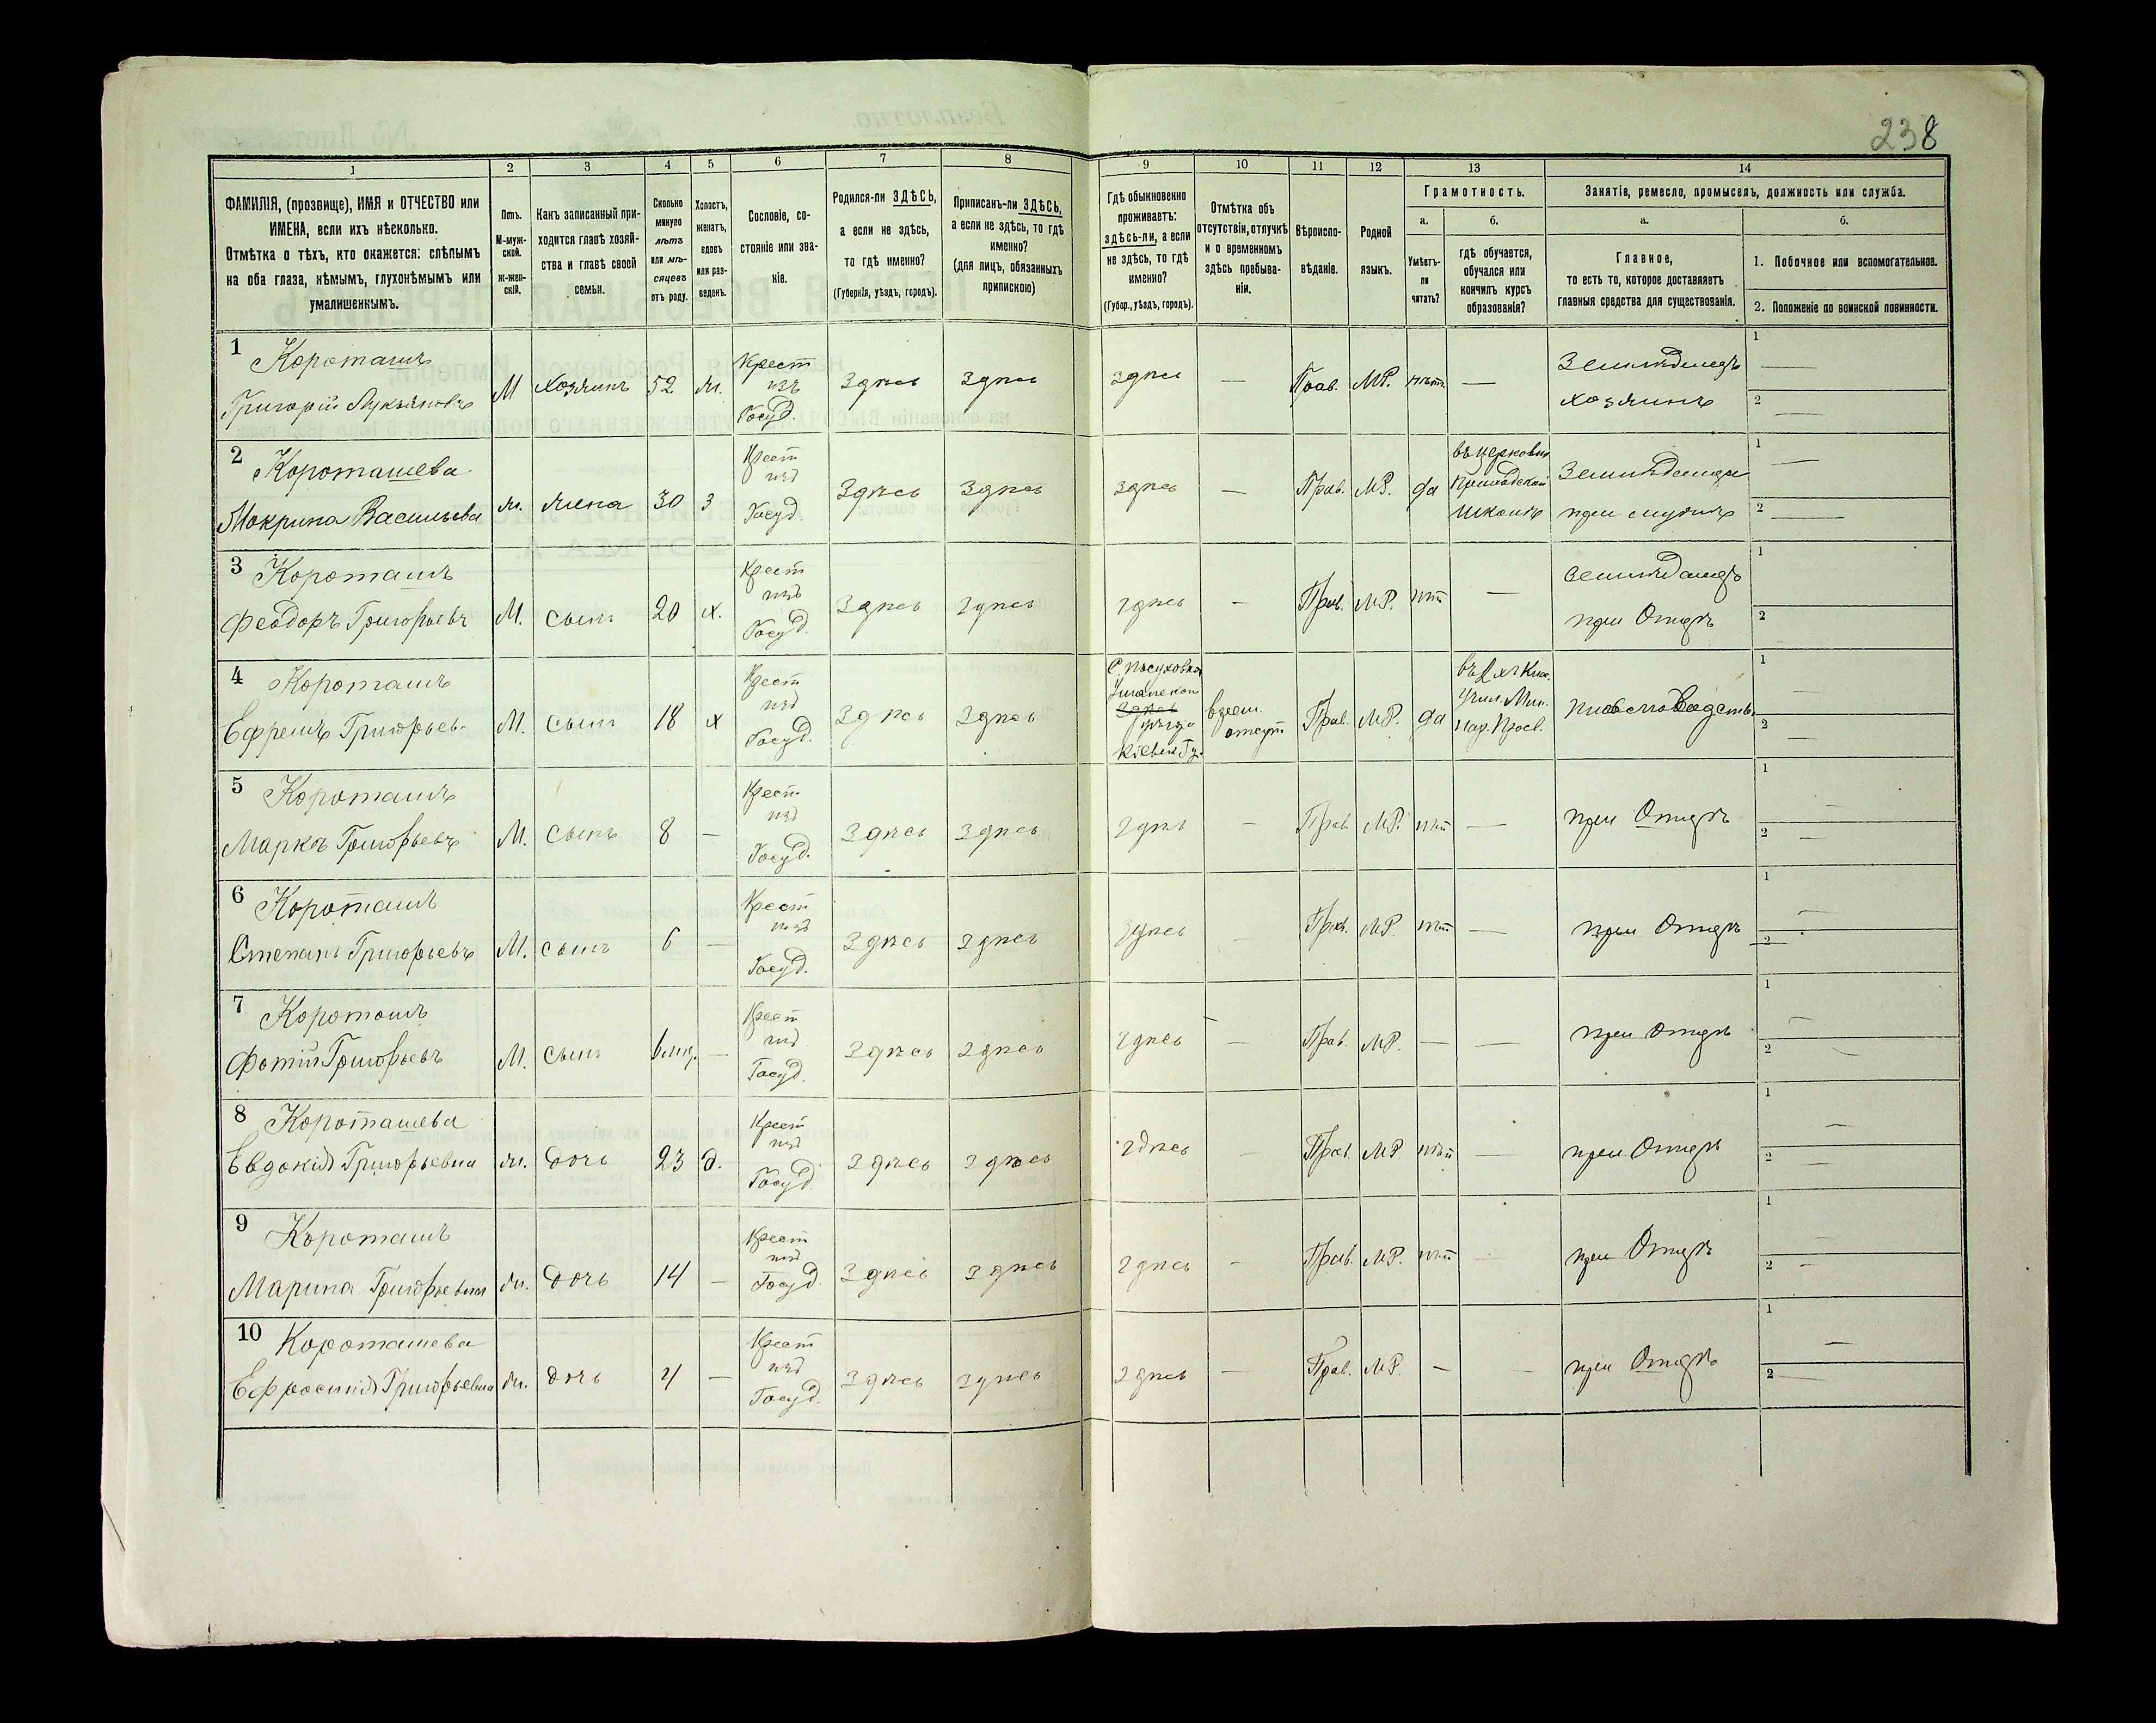 238
1 2 3 4 5 6 7 8 9 10 11 12 13 14
ФАМИЛІЯ, (прозвище), ИМЯ и ОТЧЕСТВО или
ИМЕНА, если ихъ нѣсколько.
Отмѣтка о тѣхъ, кто окажется: слѣпымъ
на оба глаза, нѣмымъ, глухонѣмымъ или
умалишеннымъ.
Полъ.
М-муж-
ской.
Ж-жен-
скій.
Какъ записанный при-
ходится главѣ хозяй-
ства и главѣ своей
семьи.
Сколько
минуло
лѣтъ
или мѣ-
сяцевъ
отъ роду.
Холостъ,
женатъ,
вдовъ
или раз-
веденъ.
Сословіе, со-
стояніе или зва-
ніе.
Родился-ли ЗДѢСЬ,
а если не здѣсь,
то гдѣ именно?
(Губернія, уѣздъ, городъ).
Приписанъ-ли ЗДѢСЬ,
а если не здѣсь, то гдѣ
именно?
(для лицъ, обязанныхъ
припискою)
Гдѣ обыкновенно
проживаетъ:
здѣсь-ли, а если
не здѣсь, то гдѣ
именно?
(Губер., уѣздъ, городъ).
Отмѣтка объ
отсутствіи, отлучкѣ
и о временномъ
здѣсь пребыва-
ніи.
Вѣроиспо-
вѣданіе.
Родной
языкъ.
Грамотность.
а.
Умѣетъ-
ли
читать?
б.
гдѣ обучается,
обучался или
кончилъ курсъ
образованія?
Занятіе, ремесло, промыселъ, должность или служба.
а.
Главное,
то есть то, которое доставляетъ
главныя средства для существованія.
б.
1. Побочное или вспомогательное.
2. Положеніе по воинской повинности.
1 Короташъ
Григорій Лукьяновъ М хозяинъ 52 ж. Крест изъ Госуд. Здѣсь Здѣсь Здѣсь — Прав. МР. нѣтъ — Земледѣлецъ хозяинъ 1 — 2 —
2 Короташева
Мокрина Васильева ж. жена 30 з Крест изъ Госуд. Здѣсь Здѣсь Здѣсь — Прав. МР. да въ церковно Приходской школѣ при мужѣ 1 — 2 —
3 Короташъ
Феодоръ Григорьевъ М. сынъ 20 х. Крест изъ Госуд. Здѣсь Здѣсь Здѣсь — Прав. МР. нѣт — земледѣлецъ при Отцѣ 1 2
4 Короташъ
Ефремъ Григорьев. М. сынъ 18 х Крест изъ Госуд. Здѣсь Здѣсь Уманскаго Здѣсь уѣзда Кіевск. Гу. врем. отсут Прав. МР. да въ 2хъ Клас. Учил. Мин. Нар. Просв. письмоводств. 1 — 2 —
5 Короташъ
Маркъ Григорьевъ М. сынъ 8 — Крест. изъ Госуд. Здѣсь Здѣсь Здѣсь — Прав. МР. нѣт — при Отцѣ 1 — 2 —
6 Короташъ
Степанъ Григорьевъ М. сынъ 6 — Крест изъ Госуд. Здѣсь Здѣсь Здѣсь — Прав. МР. нѣт — при Отцѣ 1 — 2 —
7 Короташъ
Фотій Григорьевъ М. сынъ — Крест изъ Госуд. Здѣсь Здѣсь Здѣсь — Прав. МР. — — при Отцѣ 1 — 2 —
8 Короташева
Евдокія Григорьевна ж. дочь 23 д. Крест изъ Госуд. Здѣсь Здѣсь Здѣсь — Прав. МР. нѣт — при Отцѣ 1 — 2 —
9 Короташъ
Марина Григорьевна ж. дочь 14 — Крест изъ Госуд Здѣсь Здѣсь Здѣсь — Прав. МР. нѣт — при Отцѣ 1 — 2 —
10 Короташева
Ефросинія Григорьевна ж. дочь 4 — Крест изъ Госуд. Здѣсь Здѣсь Здѣсь — Прав. МР. — — при Отцѣ 1 — 2 —